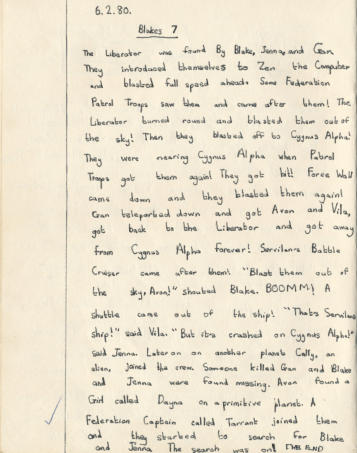 6.2.80.
Blakes 7
The Liberator was found By Blake, Jenna, and Gan
They introduced themselves to Zen the Computer
and blasted full speed ahead. Some Federation
Patrol Troops saw them and came after them! The
Liberator burned round and blasted them out of
the sky! Then they blasted off to Cygnus Alpha!
They were nearing Cygnus Alpha when Patrol
Troops got them again! They got hit! Force Wall
came down and they blasted them again!
Gan teleported down and got Avon and Vila,
got back to the Liberator and got away
from Cygnus Alpha forever! Servilans Battle
Cruser came after them! "Blast them out of
the sky, Avon!" shouted Blake. BOOMM! A
shuttle came out of the ship! "Thats Servilans
ship!" said Vila. "But its crashed on Cygnus Alpha!"
said Jenna. Later on on another planet Cally, an
alien, joined the crew. Someone killed Gan and Blake
and Jenna were found missing. Avon found a
Girl called Dayna on a primitive planet. A
Federation Captain called Tarrant joined them
and they started to search for Blake
and Jenna The search was on! THE END